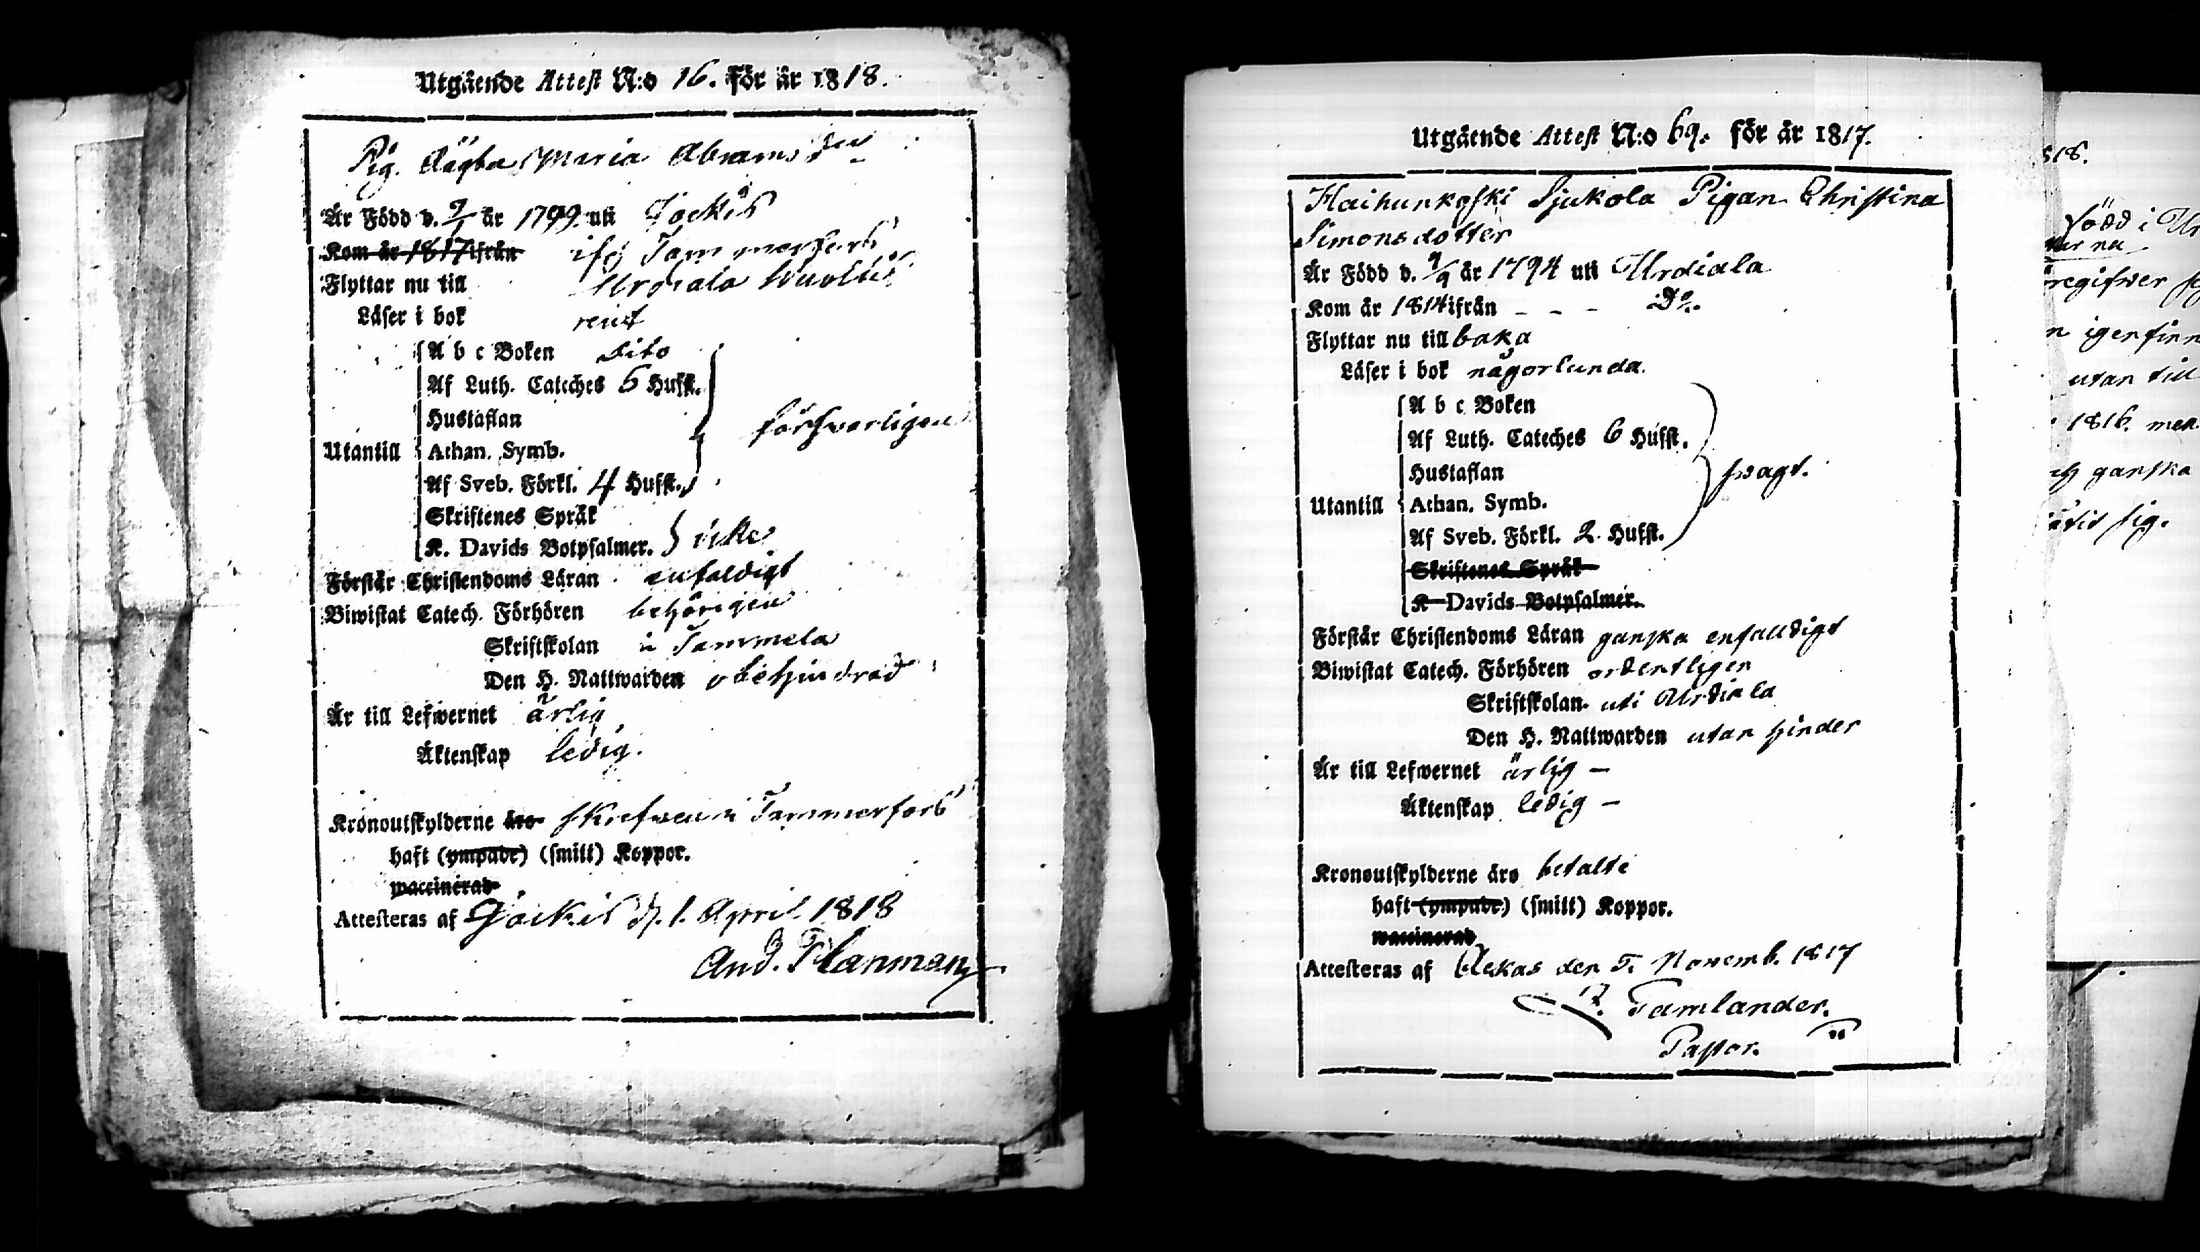 Utgående Attest N:o 16. för år 1818.
Pig. Maria Abrams
Är Född d. år 1799 uti Jockis
Kom år 1817 ifrån Tammerfors
Flyttar nu till Urdiala
Läser i bok rent
A b c Boken dito
Af Luth. Cateches 6 Hufst.
Hustaflan försvarligen
Utantill Athan. Symb.
Af Sveb. Förkl. 4 Hufst.
Skriftenes Språk
K. Davids Botpsalmer. icke
Förstår Christendoms Läran enfaldigt
Biwistat Catech. Förhören behörigen
Skriftskolan i Tammela
Den H. Nattwarden obehindrad
Är till Lefwernet ärlig
Äktenskap ledig.
Kronoutskylderne äro skrefven i Tammerfors
haft (ympade) (smitt) Koppor.
waccinerad
Attesteras af Jockis d. 1. April 1818
And. Planman
Utgående Attest N:o 69. för år 1817.
Haihunkoski Sjukola Pigan Christina
Simonsdotter
Är Född d. 9/9 år 1794 uti Urdiala
Kom år 1814 ifrån - - - Do.
Flyttar nu till baka
Läser i bok någorlunda.
A b c Boken
Af Luth. Cateches 6 Hufst.
Hustaflan svagt.
Utantill Athan. Symb.
Af Sveb. Förkl. 2. Hufst.
Skriftenes Språk
K Davids Botpsalmer.
Förstår Christendoms Läran ganska enfalldigt
Biwistat Catech. Förhören ordentligen
Skriftskolan uti Urdiala
Den H. Nattwarden utan hinder
Är till Lefwernet ärlig -
Äktenskap ledig -
Kronoutskylderne äro betalte
haft (ympade) (smitt) Koppor.
waccinerad
Attesteras af Akas den 5. Novemb. 1817
Tamlander.
Pastor.
818.
född i
igenfinn
utan till
1816. men
ganska
sig.